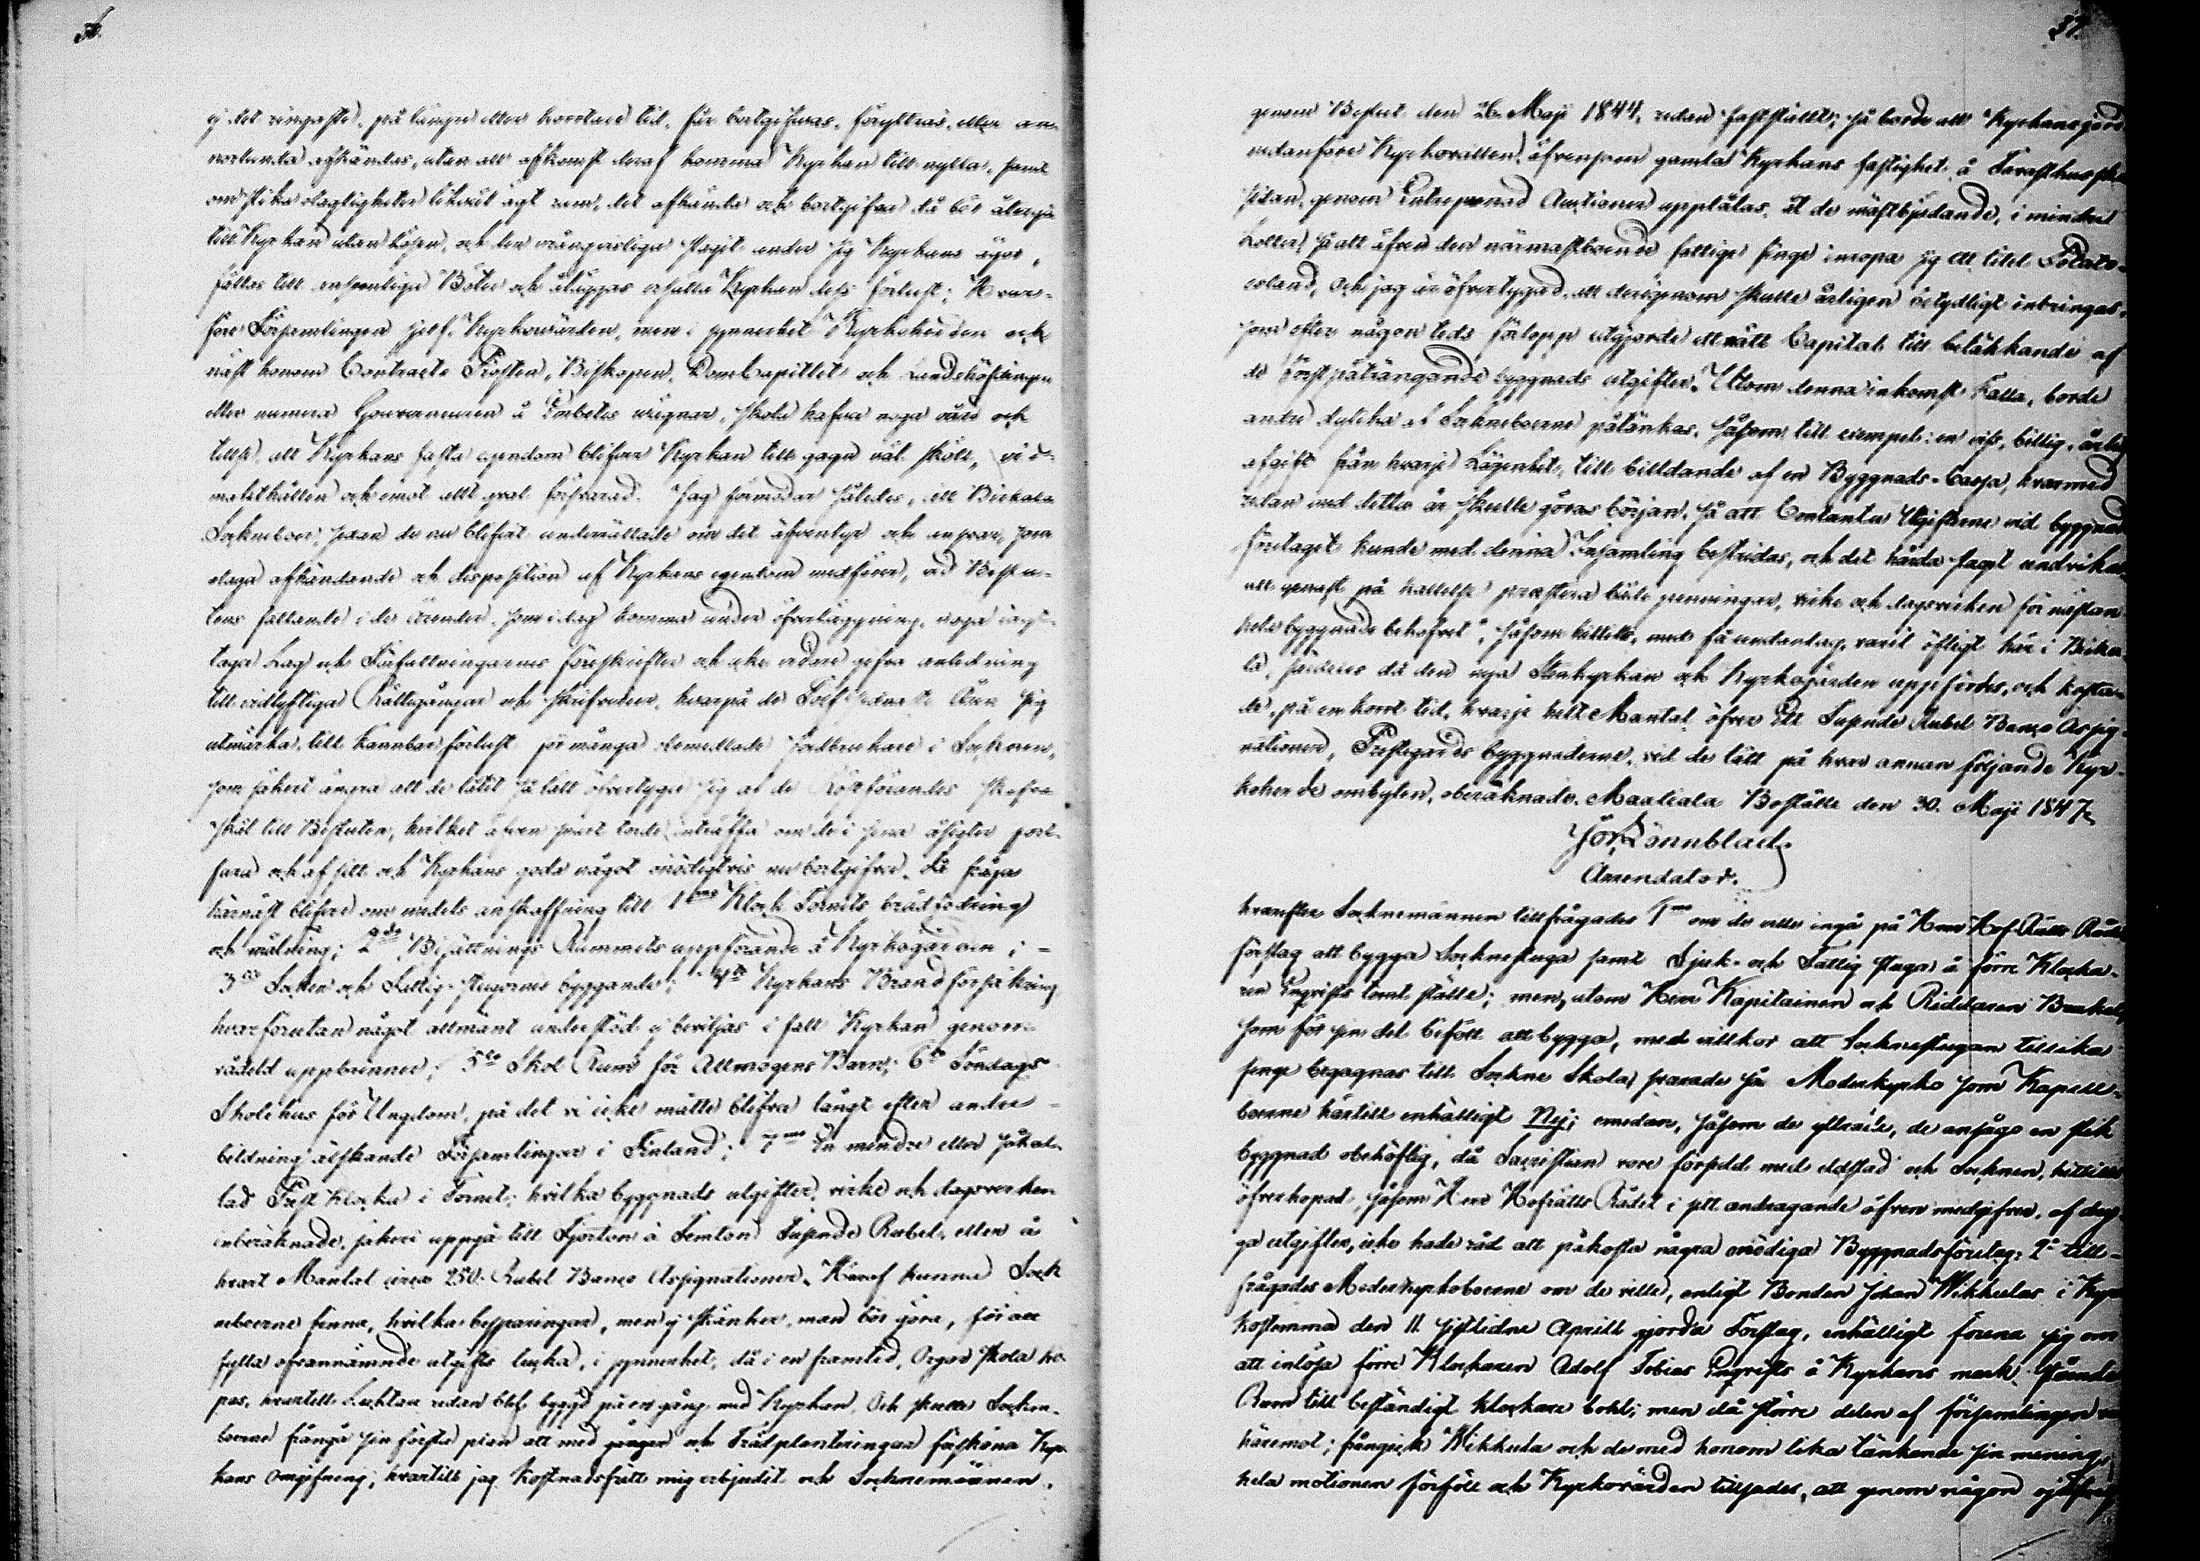 36.
ej det ringaste, på längre eller kortare tid, får bortgifvas, förytras, eller an-
norlunda afhändas, utan att afkomst deraf komma Kyrkan till nytta, samt
om slika olagligheter likväl ägt rum, det afhända och bortgifna då bör återgå
till Kyrkan utan lösen, och den orångvisliga tagit under sig Kyrkans ägor,
fällas till ansenliga Böter och åläggas ersätta Kyrkan dess förlust; Hvar-
före Församlingen sjelf, Kyrkovärden, men i synnerhet Kyrkoherden och
näst honom Contracts Prosten, Biskopen, DomCapitlet och Landshöfdingen
eller numera Gouverneuren å Embetes vägnar, skola hafva noga vård och
tillse, att Kyrkans fasta egendom blifver Kyrkan till gagn väl skött, vid
makt hållen och emot allt qval försvarad. Jag förmodar således, att Birkala
Sockneboer, sedan de nu blifvit underrättade om det äfventyr och ansvar, som
olaga afhändande och disposition af Kyrkans egendom medförer, vid Beslu-
tens fattande i de ärender, som i dag komma under öfverläggning, noga iagt-
taga Lag och Författningarnes föreskrifter och icke vidare gifva anledning
till vidlyftiga Rättegångar och skrifvelser, hvarpå de Tolf sednaste Åren sig
utmärka, till kännbar förlust för många obemedlade Jordbrukare i Socknen,
som säkert ångra att de låtit så lätt öfvertyga sig af de Rösträttförandes
skäl till Besluten, hvilket äfven snart torde inträffa om de i sina åsigter fort-
fara och af sitt och Kyrkans goda något onödigtvis nu bortgifva. Då fråga
härnäst blifver om medels anskaffning till 1mo Klock Tornets brädfodring
och målning; 2do Bisättnings Rummets uppförande å Kyrkogården;
3o Socken och Fattig-stugornes byggande; 4to Kyrkans Brandförsäkring
hvarförutan något allmänt understöd ej beviljas i fall Kyrkan genom
vådeld uppbrinner; 5to Skol Rum för Allmogens Barn; 6to Söndags
Skolehus för Ungdom, på det vi icke måtte blifva långt efter andre
bildning älskande Församlingar i Finland; 7mo En mindre eller såkal-
lad Prest Klocka i Tornet; hvilka byggnads utgifter, virke och dagsverken
inberäknade, säkert uppgå till Fjorton á Femton Tusende Rubel, eller å
hvart Mantal circa 250 Rubel Banco Assignationer. Häraf kunna Sock
neboerne finna, hvilka besparingar, men ej skänker, man bör göra, för att
fylla ofvannämnde utgifts lucka, i synnerhet, då i en framtid, Orgor skola kö-
pas, hvartill Lecktan redan blef byggd på en gång med Kyrkan. Och skulle Sockne-
boerne frångå sin första plan att med gångar och Trädplanteringar försköna Kyr-
kans omgifning, hvartill jag kostnadsfritt mig erbjudit och Socknemännen,
37.
genom Beslut den 26. Maji 1844, redan fastställt; så borde all Kyrkans jord
nedanföre Kyrkovallen, äfvensom gamla Kyrkans fastighet å Tavasthusska
sidan, genom Entreprenad Auctioner upplåtas, åt de mästbjudande, i mindre
Lotter, så att äfven den närmastboende fattige finge inropa sig ett litet Potato-
esland, och jag är öfvertygad, att derigenom skulle årligen betydligt inbringas,
som efter någon tids förlopp utgjorde ett nätt Capital till betäckande af
de först påträngande byggnads utgifter. Utom denna inkomst Källa, borde
andre dylika af Sockneboerne påtänkas, såsom till exempel: en viss, billig, årlig
afgift från hvarje Lägenhet, till bildande af en Byggnads-Cassa, hvarmed
redan med detta år skulle göras början, så att Contanta Utgifterne vid byggnads
företaget kunde med denna Insamling bestridas, och det hårda slaget undvikas
att genast på kallelse prestera både penningar, virke och dagsverken för nästan
hela byggnads behofvet, såsom hittills, med få undantag, varit öfligt här i Birka-
la, särdeles då den nya Stenkyrkan och Kyrkogården uppfördes, och kosta-
de, på en kort tid, hvarje helt Mantal öfver Ett Tusende Rubel Banco Assig-
nationer, Prestgårds byggnaderne, vid de tätt på hvarannan följande Kyr-
koherde ombyten, oberäknade. Maatiala Boställe den 30. Maji 1847.
Jör. Lönnblad.
Arrendator.
hvarefter Socknemännen tillfrågades 1mo om de ville ingå på Herr Hof Rätts Rådets
förslag att bygga Socknestuga samt Sjuk- och Fattig stuga å förre Klocka-
ren Engrists tomt ställe; men, utom Herr Kapitainen och Riddaren
som för sin del biföll att bygga, med villkor att Socknestugan tillika
finge begagnas till Sockne Skola, svarade så Moderkyrko som Kapell-
boerne härtill enhälligt Nej; emedan, såsom de yttrade, de ansågo en slik
byggnad obehöflig, då Sacristian vore försedd med eldstad och Socknen, hittills
öfverhopad, såsom Herr Hofrätts Rådet i sitt andragande äfven medgifver, af dry-
ga utgifter, icke hade råd att påkosta några onödiga Byggnadsföretag: 2o till-
frågades Moderkyrkoboerne om de ville, enligt Bonden Johan Mikkulas i Kyr-
kostämma den 11. sistlidne Aprill gjorda Förslag, enhälligt förena sig om
att inlösa förre Klockaren Adolf Tobias Engrists å Kyrkans mark stående
Rum till beständigt klockare bohl; men då större delen af församlingen var
häremot; frångick Mikkula och de med honom lika tänkande sin mening;
hela motionen förföll och Kyrkovärden tillsades, att genom någon